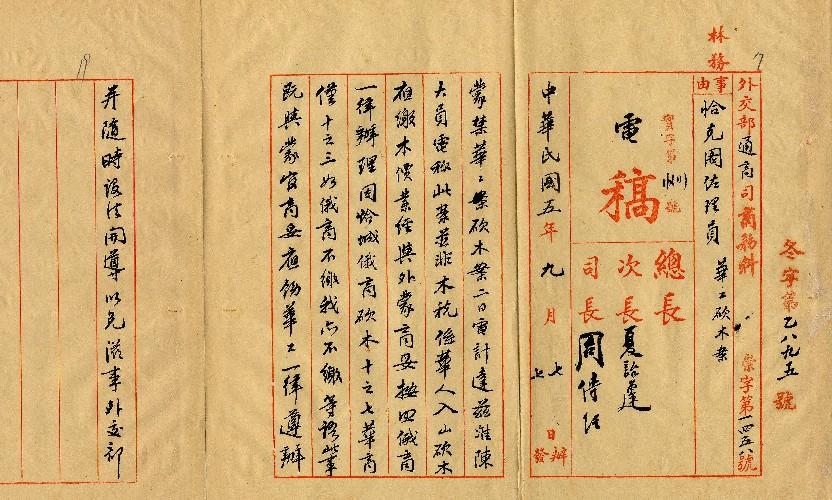 林務
冬字第乙八九五號
外交部通商司商務科 榮字第一四五八號
事由
恰克圖佐理員 華工砍木案
寶字第 號
電稿
總長
次長夏詒霆
司長周傳經
中華民國五年九月七日辦
七發
蒙禁華工案砍木案二日電計達茲准陳
大員電稱此案並非木稅係華人入山砍木
應繳木價業經與外蒙商妥按四俄商
一律辦理因恰城俄商砍木十之七華商
僅十之三如俄商不繳我亦不繳等語此事
既與蒙官商妥應飭華工一律遵辦
并隨時設法開導以免滋事外交部